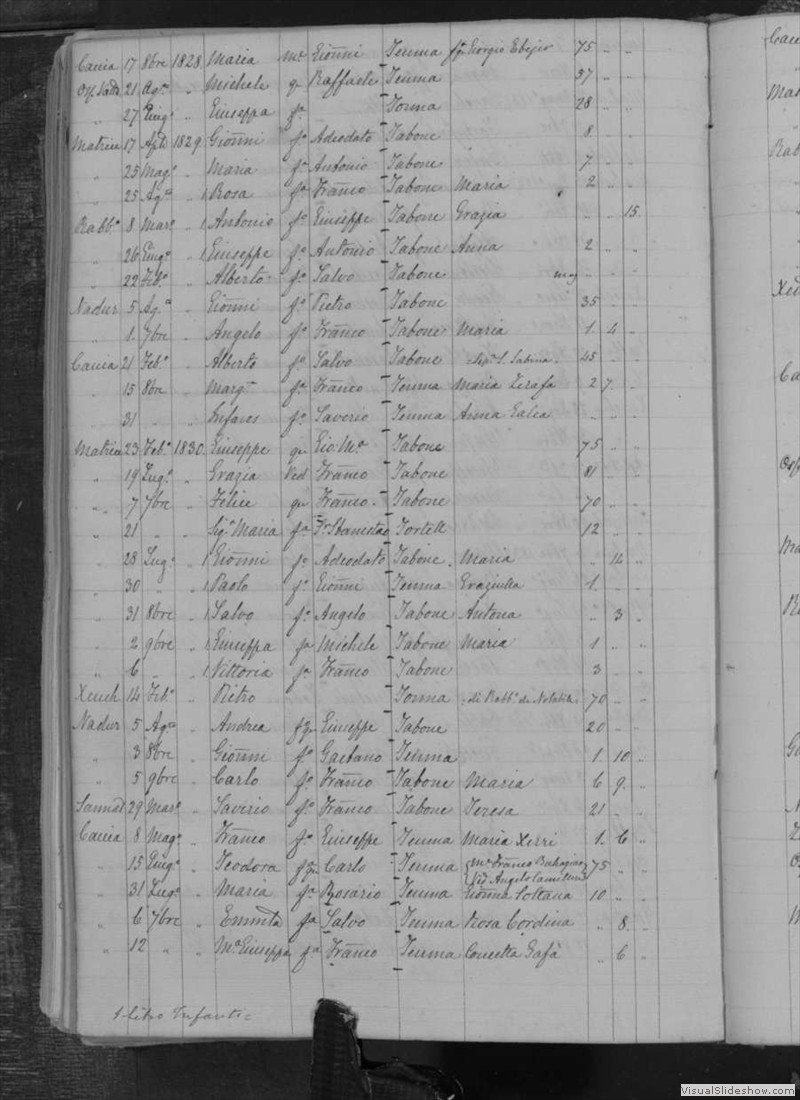 Caccia 17 8bre 1828 Maria Mre Gionni Teuma fq Giorgio Ebejer 75 " "
Osp Vada 21 Agto " Michele qu Raffaele Teuma 37 " "
" 27 Giugo " Giuseppa fa Torma 28 " "
Matrice 17 Aple 1829 Gionni fo Adeodato Tabone 8 " "
" 25 Mago " Maria fa Antonio Tabone 7 " "
" 25 Agto " Rosa fa Franco Tabone Maria 2 " "
Rabbo 8 Maro " Antonio fo Giuseppe Tabone Grazia " " 15
" 26 Giugo " Giuseppe fo Antonio Tabone Anna 2 " "
" 22 Febo " Alberto fo Salvo Tabone " "
Nadur 5 Ago " Gionni fo Pietro Tabone 35 " "
" 1 7bre " Angelo fo Franco Tabone Maria 1 4 "
Caccia 21 Febo " Alberto fo Salvo Tabone S. Sabina 45 " "
" 15 8bre " Margta fa Franco Teuma Maria Zerafa 2 7 "
" 31 " " Infares fo Saverio Teuma Anna Galea " " "
Matrice 23 Febo 1830 Giuseppe qu Gio: Ma Tabone 75 " "
" 19 Lugo " Grazia Ved Franco Tabone 81 " "
" 7 7bre " Felice qu Franco Tabone 70 " "
" 21 " " Siga Maria fa Sr Stanislao Tortell 12 " "
" 28 Lugo " Gionni fo Adeodato Tabone Maria " 14 "
" 30 " " Paolo fo Gionni Teuma Graziulla 1 " "
" 31 8bre " Salvo fo Angelo Tabone Antona " 3 "
" 2 9bre " Giuseppa fa Michele Tabone Maria 1 " "
" 6 " Vittoria fa Franco Tabone 3 " "
Xeuch 14 Febo " Pietro Torma di Rabbo de Notabile 70 " "
Nadur 5 Agto " Andrea fq Giuseppe Tabone 20 " "
" 3 8bre " Gionni fo Gaetano Teuma 1 10 "
" 5 9bre " Carlo fo Franco Tabone Maria 6 9 "
Sannat 29 Maro " Saverio fo Franco Tabone Teresa 21 " "
Caccia 8 Mago " Franco fo Giuseppe Teuma Maria Xerri 1 6 "
" 15 Giugo " Teodora fq Carlo Teuma Mre Franco Buhagiar 75 " "
Ved Angelo Camilleri
" 31 Lugo " Maria fa Rosario Teuma Gionna Soltana 10 " "
" 6 7bre " Emmta fa Salvo Teuma Rosa Cordina " 8 "
" 12 " " Ma Giuseppa fa Franco Teuma Concetta Gafà " 6 "
1 libro Infanti =
VisualSlideshow.com